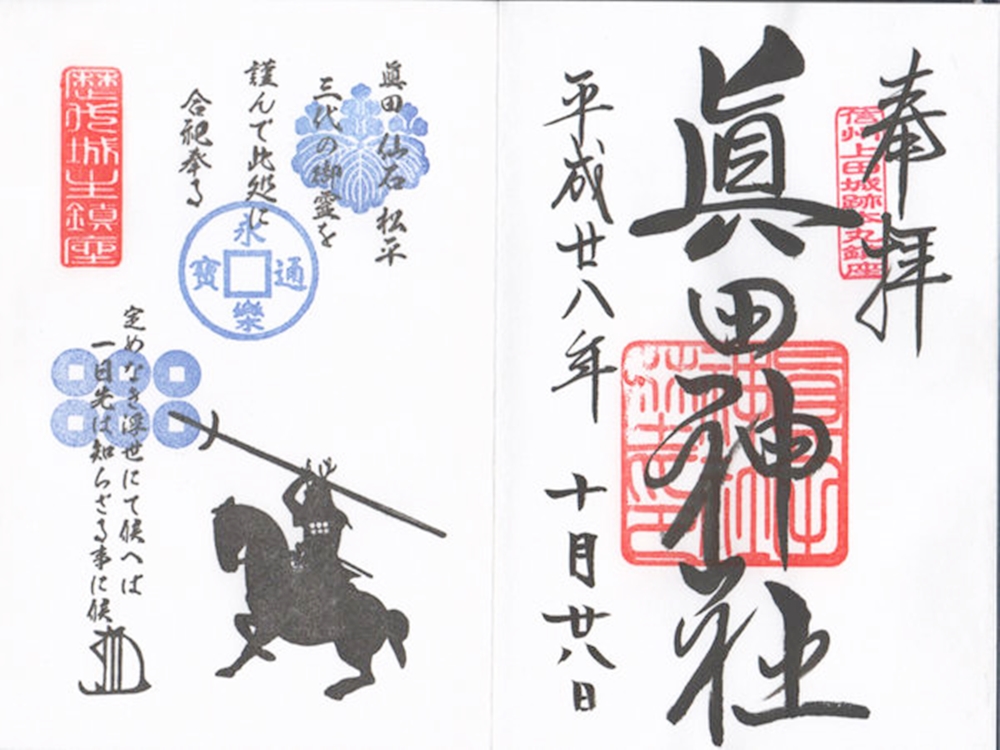 奉拝
信州上田城跡本丸鎮座
眞田神社
平成廿八年 十月廿八日
眞田 仙石 松平
三代の御霊を
謹んで此処に
合祀奉る
歴代城主鎮座
永樂通寶
定めなき浮世にて候へは
一日先は知らざる事に候